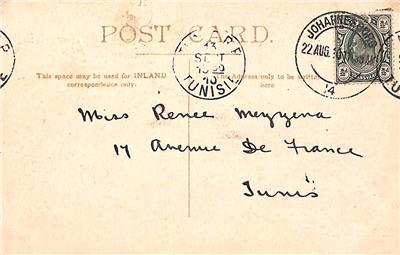 POST CARD.
JOHANNESBURG
22 AUG
14
13
SEPT
TUNISIE
This space may be used for INLAND
correspondence only.
The Address only to be written
here
Miss Renee Meyzena
17 Avenue De France
Tunis